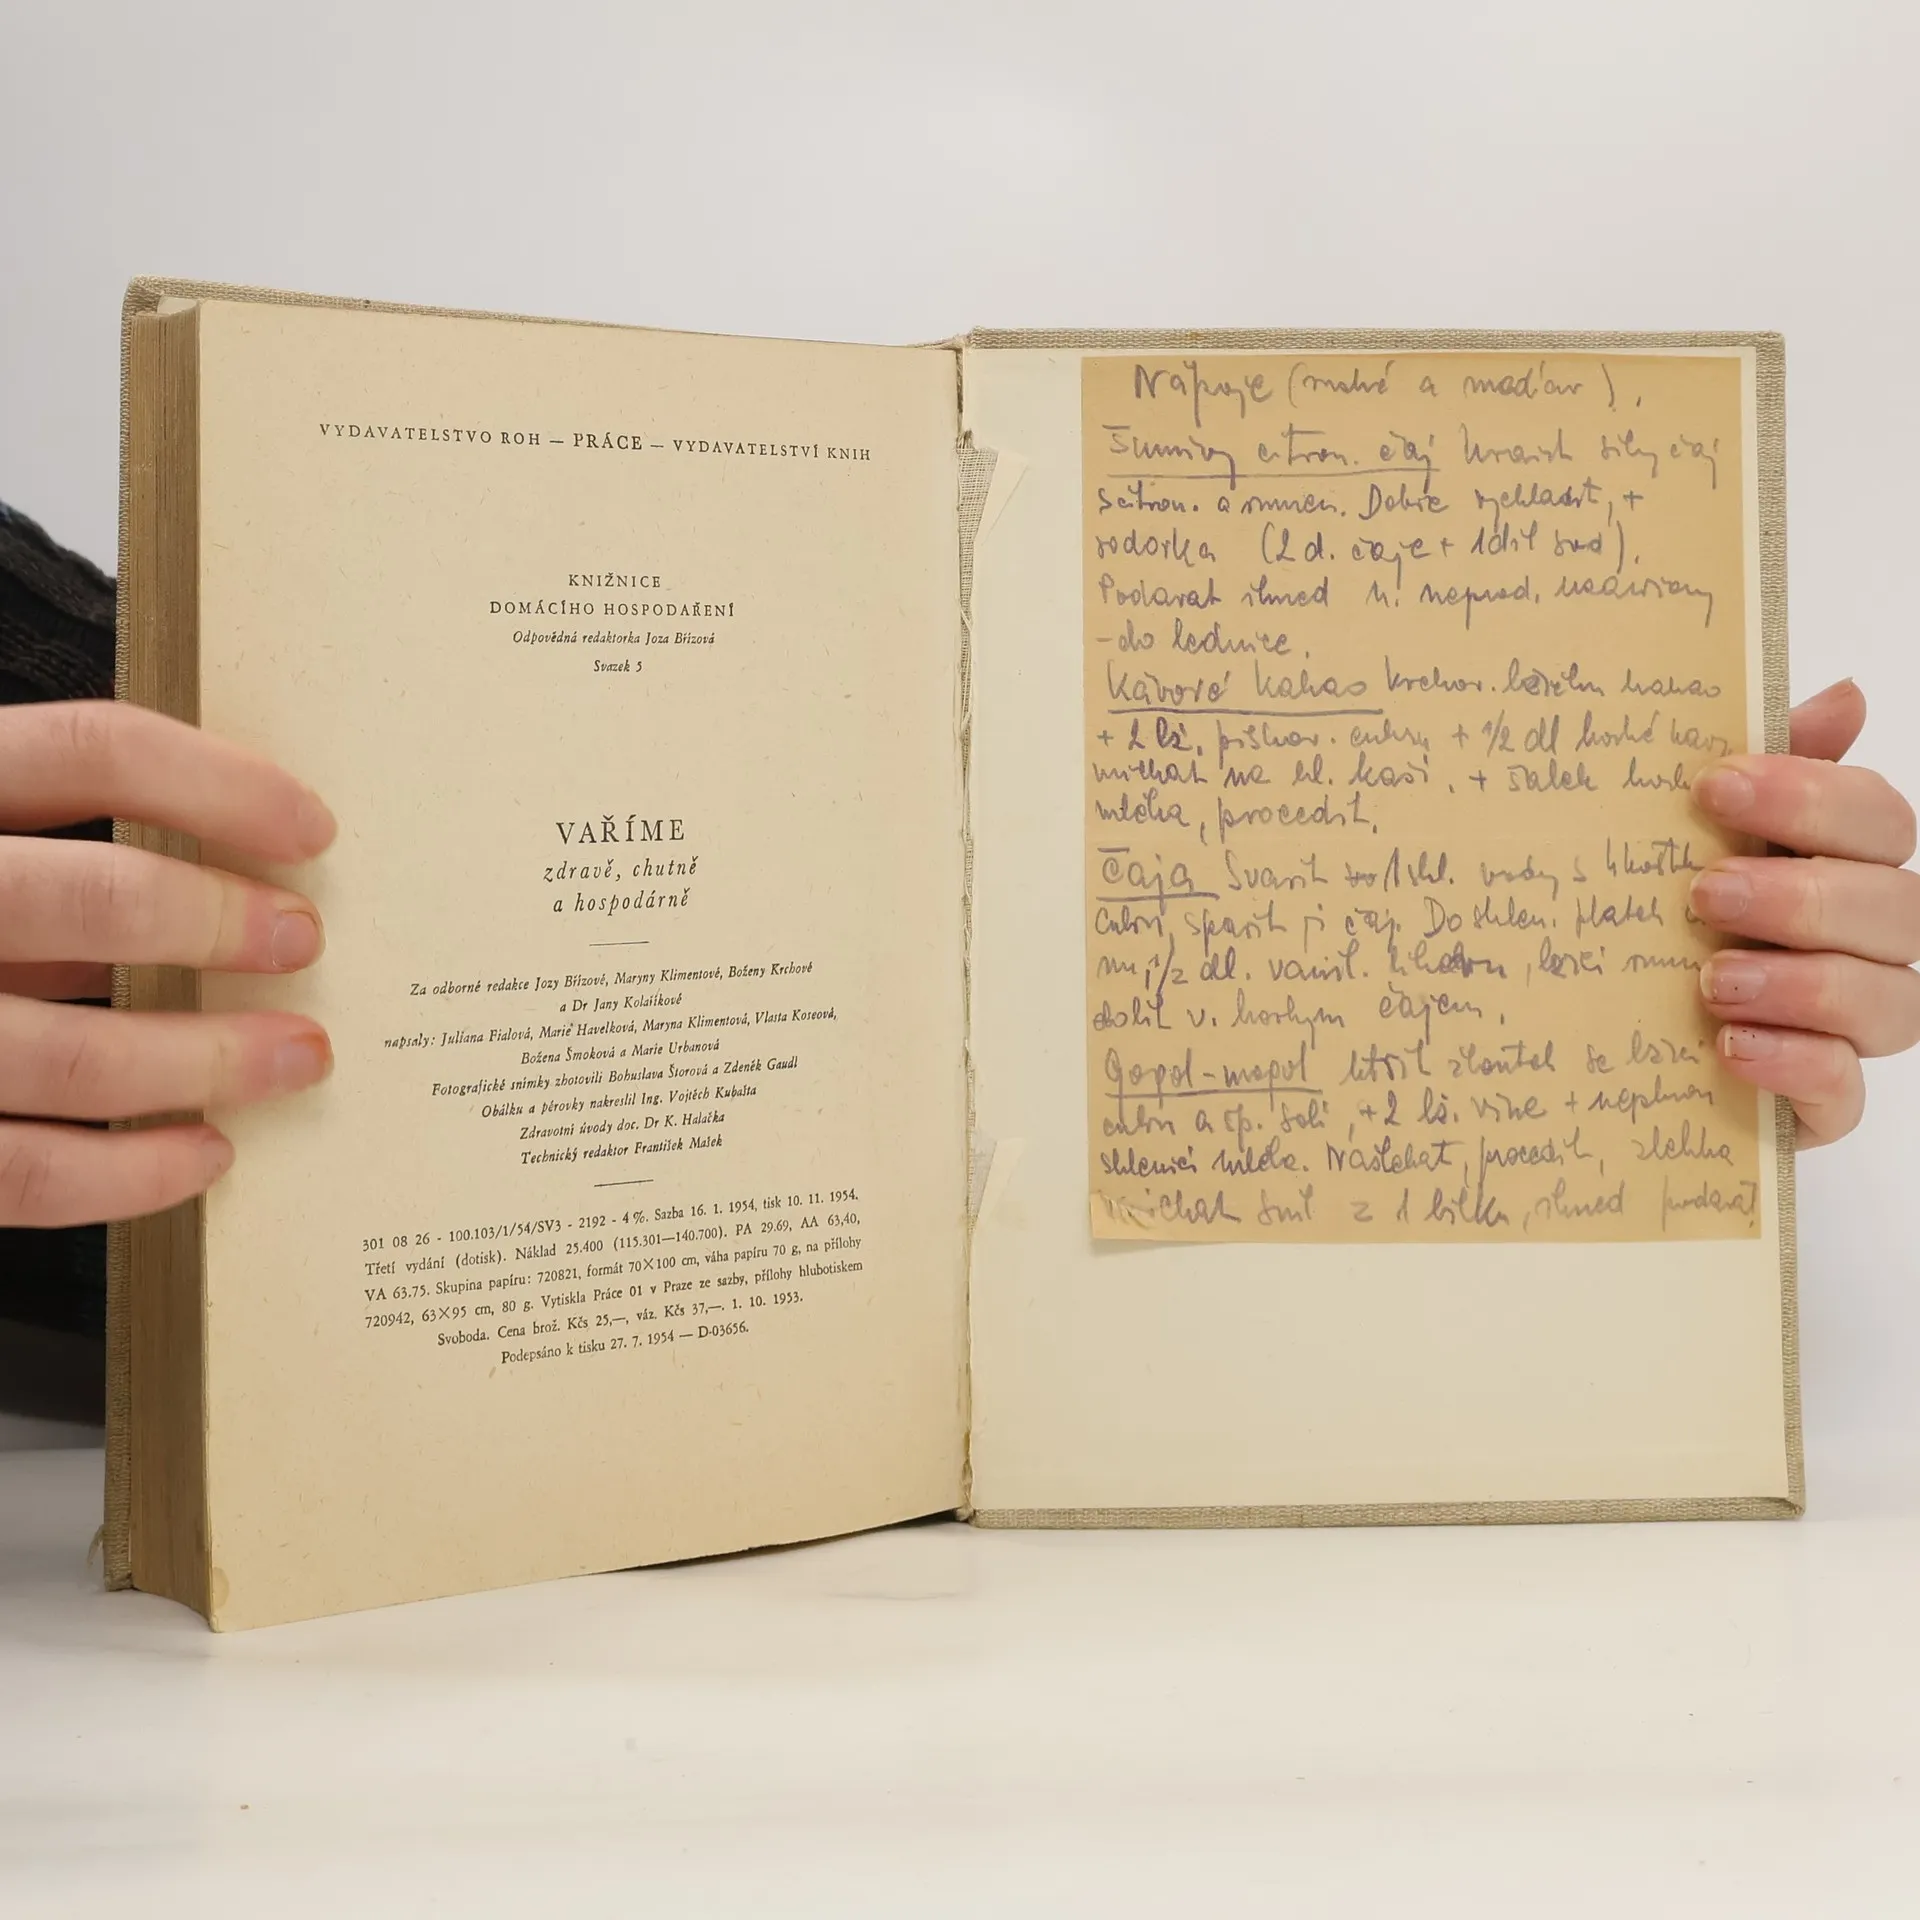 VYDAVATELSTVO ROH — PRÁCE — VYDAVATELSTVÍ KNIH
KNIŽNICE
DOMÁCÍHO HOSPODAŘENÍ
Odpovědná redaktorka Joza Břízová
Svazek 5
VAŘÍME
zdravě, chutně
a hospodárně
Za odborné redakce Jozy Břízové, Maryny Klimentové, Boženy Krchové
a Dr Jany Kolaříkové
napsaly: Juliana Fialová, Marie Havelková, Maryna Klimentová, Vlasta Koseová,
Božena Šmoková a Marie Urbanová
Fotografické snímky zhotovili Bohuslava Štorová a Zdeněk Gaudl
Obálku a pérovky nakreslil Ing. Vojtěch Kubašta
Zdravotní úvody doc. Dr K. Halačka
Technický redaktor František Mašek
301 08 26 - 100.103/1/54/SV3 - 2192 - 4%. Sazba 16. 1. 1954, tisk 10. 11. 1954.
Třetí vydání (dotisk). Náklad 25.400 (115.301—140.700). PA 29.69, AA 63,40,
VA 63.75. Skupina papíru: 720821, formát 70×100 cm, váha papíru 70 g, na přílohy
720942, 63×95 cm, 80 g. Vytiskla Práce 01 v Praze ze sazby, přílohy hlubotiskem
Svoboda. Cena brož. Kčs 25,—, váz. Kčs 37,—. 1. 10. 1953.
Podepsáno k tisku 27. 7. 1954 — D-03656.
Nápoje (ruské a maďar).
Šumivý citron. čaj silný čaj
s citron. a rumem. Dobře vychladit, +
sodovka (2 d. čaje + 1 díl sod).
Podávat ihned n. neprod. uzavřený
- do lednice.
Kávové kakao kakao
+ 2 lž. pískov. cukru + 1/2 dl horké kávy
míchat na hl. kaši, + šálek hork
mléka, procedit.
Čaja Svařit 1 skl. vody s 4 kostk
cukru, spařit jí čaj. Do sklen. plátek
1/2 dl. vanil. likéru, lžíci rumu
dolít v. horkým čajem.
Gogol-mogol utřít žloutek se lžící
cukru a šp. soli, + 2 lž. + neplnou
sklenicí mléka. Našlehat, procedit, zlehka
míchat sníh z 1 bílku, ihned podávat